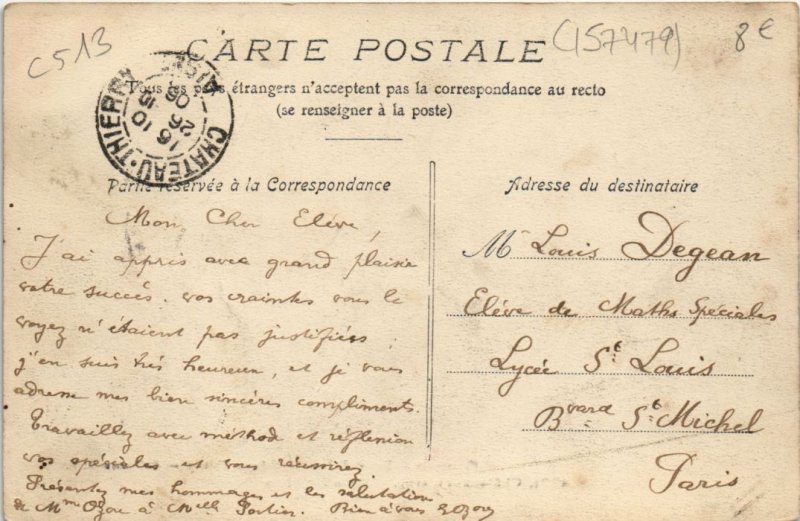 C513
(157479)
8€
CARTE POSTALE
Tous les pays étrangers n'acceptent pas la correspondance au recto
(se renseigner à la poste)
CHATEAU-THIERRY AISNE
16 10
26-10
06
Partie réservée à la Correspondance
Mon Cher Elève,
J'ai appris avec grand plaisir
votre succès. vos craintes vous le
voyez n'étaient pas justifiées ;
j'en suis très heureux, et je vous
adresse mes bien sincères compliments.
Travaillez avec méthode et réflexion
vos spéciales et vous réussirez.
Présentez mes hommages et les salutations
de Mme Ozou à Melle Portier. Bien à vous
Adresse du destinataire
Mr Louis Degean
Elève de Maths Spéciales
Lycée St Louis
Bvard St Michel
Paris